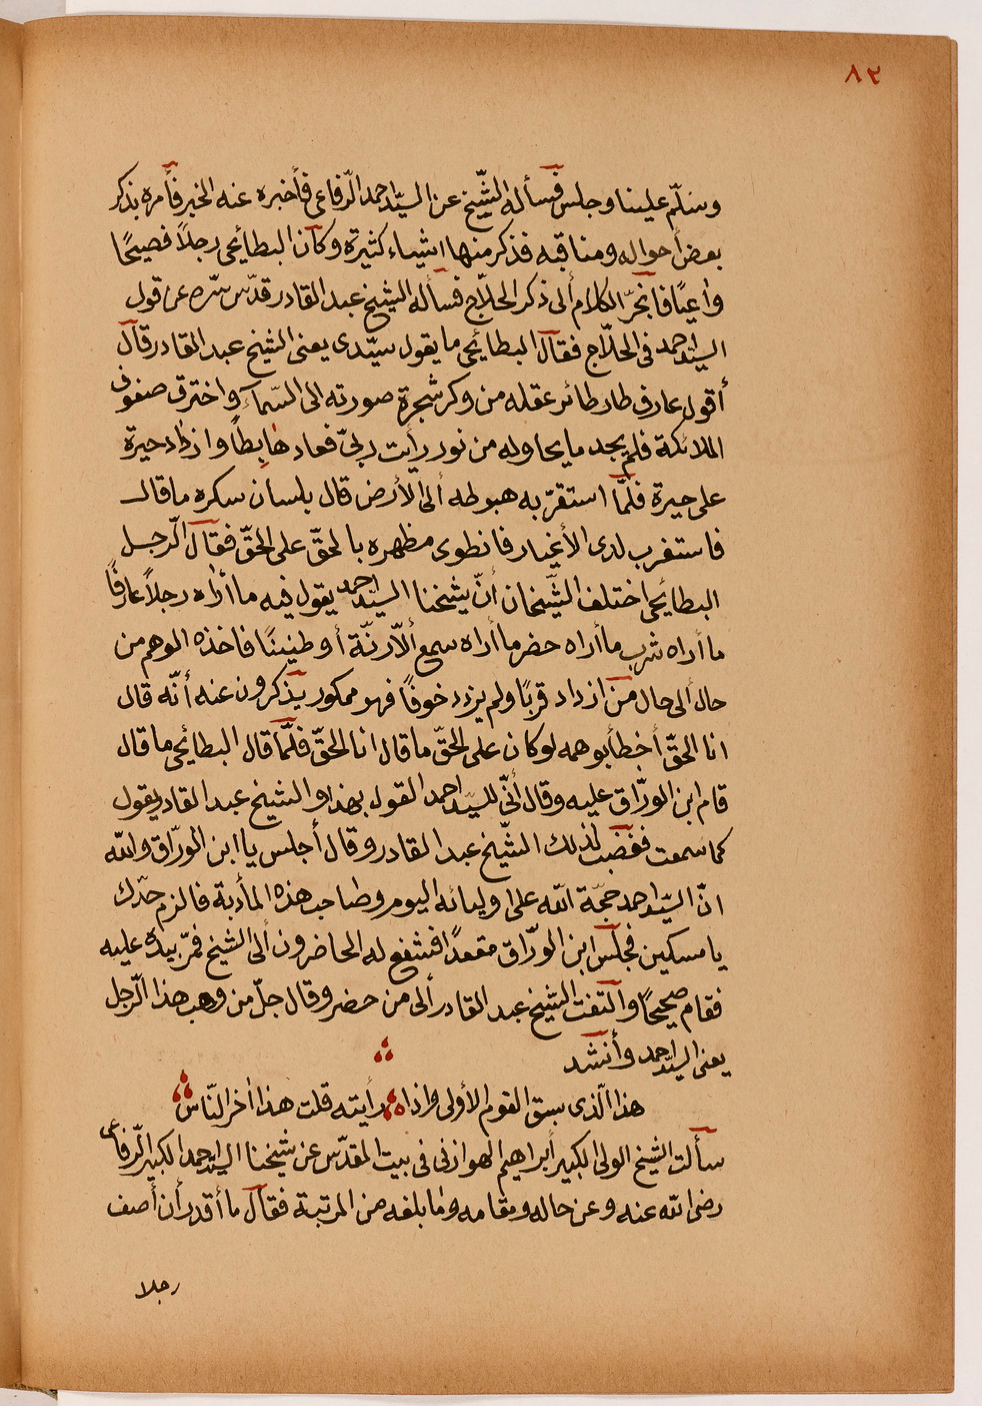 ٨٢
وسلّم علينا وجلس فسأله الشّيخ عن السيّد احمد الرّفاعى فأخبره عنه الخبر فأمره بذكر
بعض أحواله ومناقبه فذكر منها اشياء كثيرة وكان البطائحى رجلاً فصيحًا
واعيًا فانجرّ الكلام ألى ذكر الحلّاج فسأله الشيخ عبد القادر قدّس سّره عن قول
السيّد احمد فى الحلّاج فقال البطائحى ما يقول سيّدى يعنى الشيخ عبد القادر قال
أقول عارف طار طائر عقله من وكر شجرة صورته الى السّمآء واخترق صفوف
الملائكة فلم يجد ما يحاوله من نور رأيت ربىّ فعاد هابِطاً وازداد حيرة
على حيرة فلمّا استقرّ به هبوطه ألى الأرض قال بلسان سكره ما قال
فاستغرب لدى الأغيار فانطوى مظهره بالحقّ على الحقّ فقال الرّجل
البطائحى اختلف الشّيخان أنّ شيخنا السيّد احمد يقول فيه ما أراه رجلاً عارفًا
ما أراه شرب ما أراه حضر ما أراه سمع ألّا رنّة أو طنينًا فاخذه الوهم من
حال ألى حال من ازداد قربًا ولم يزدد خوفًا فهو ممكور يذكرون عنه أنّه قال
انا الحقّ أخطأ بوهمه لو كان على الحقّ ما قال انا الحقّ فلمّا قال البطائحى ما قال
قام ابن الورّاق عليه وقال أنّى للسيّد احمد القول بهذا والشيخ عبد القادر يقول
كما سمعت فغضب لذلك الشّيخ عبد القادر وقال أجلس يا ابن الورّاق والله
انّ السيّد احمد حجّة الله على اوليائه اليوم وصاحب هذه المأدبة فالزم حدّك
يا مسكين فجلس ابن الورّاق مقعدًا فشفع له الحاضرون ألى الشيخ فمرّ بيده عليه
فقام صحيحًا والتفت الشيخ عبد القادر ألى من حضر وقال جلّ من وهب هذا الرّجل
يعنى السيّد احمد وأنشد
هذا الّذى سبق القوم الأولى واذا رأيته قلت هذا أخر النّاس
سألت الشيخ الولى الكبير أبراهيم الهوازنى فى بيت المقدّس عن شيخنا السيّد احمد الكبير الرّفاعى
رضى الله عنه وعن حاله ومقامه وما بلغه من المرتبة فقال ما أقدر أن أصف
رجلا